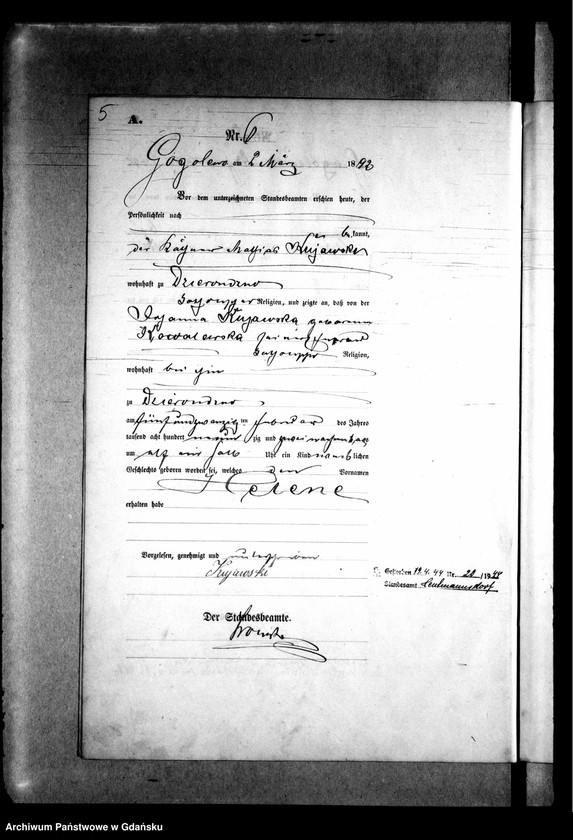 5
A.
Nr. 6
Gogolewo am 2 März 1892
Vor dem unterzeichneten Standesbeamten erschien heute, der
Persönlichkeit nach
kannt,
der Käthner Mathias Kujawski
wohnhaft zu Dzierondzno
Religion, und zeigte an, daß von der
Kujawska geborenen
Kowalewska seiner Ehefrau
Religion,
wohnhaft bei ihm
zu Dzierondzno
am fünfundzwanzig ten Februar des Jahres
tausend acht hundert neunzig und zwei
um elf ein halb Uhr ein Kind weiblichen
Geschlechts geboren worden sei, welches den Vornamen
Helene
erhalten habe
Vorgelesen, genehmigt und unterschrieben
Kujawski
Gestorben 19.4.44 Nr. 20/1944
Standesamt
Der Standesbeamte.
Archiwum Państwowe w Gdańsku